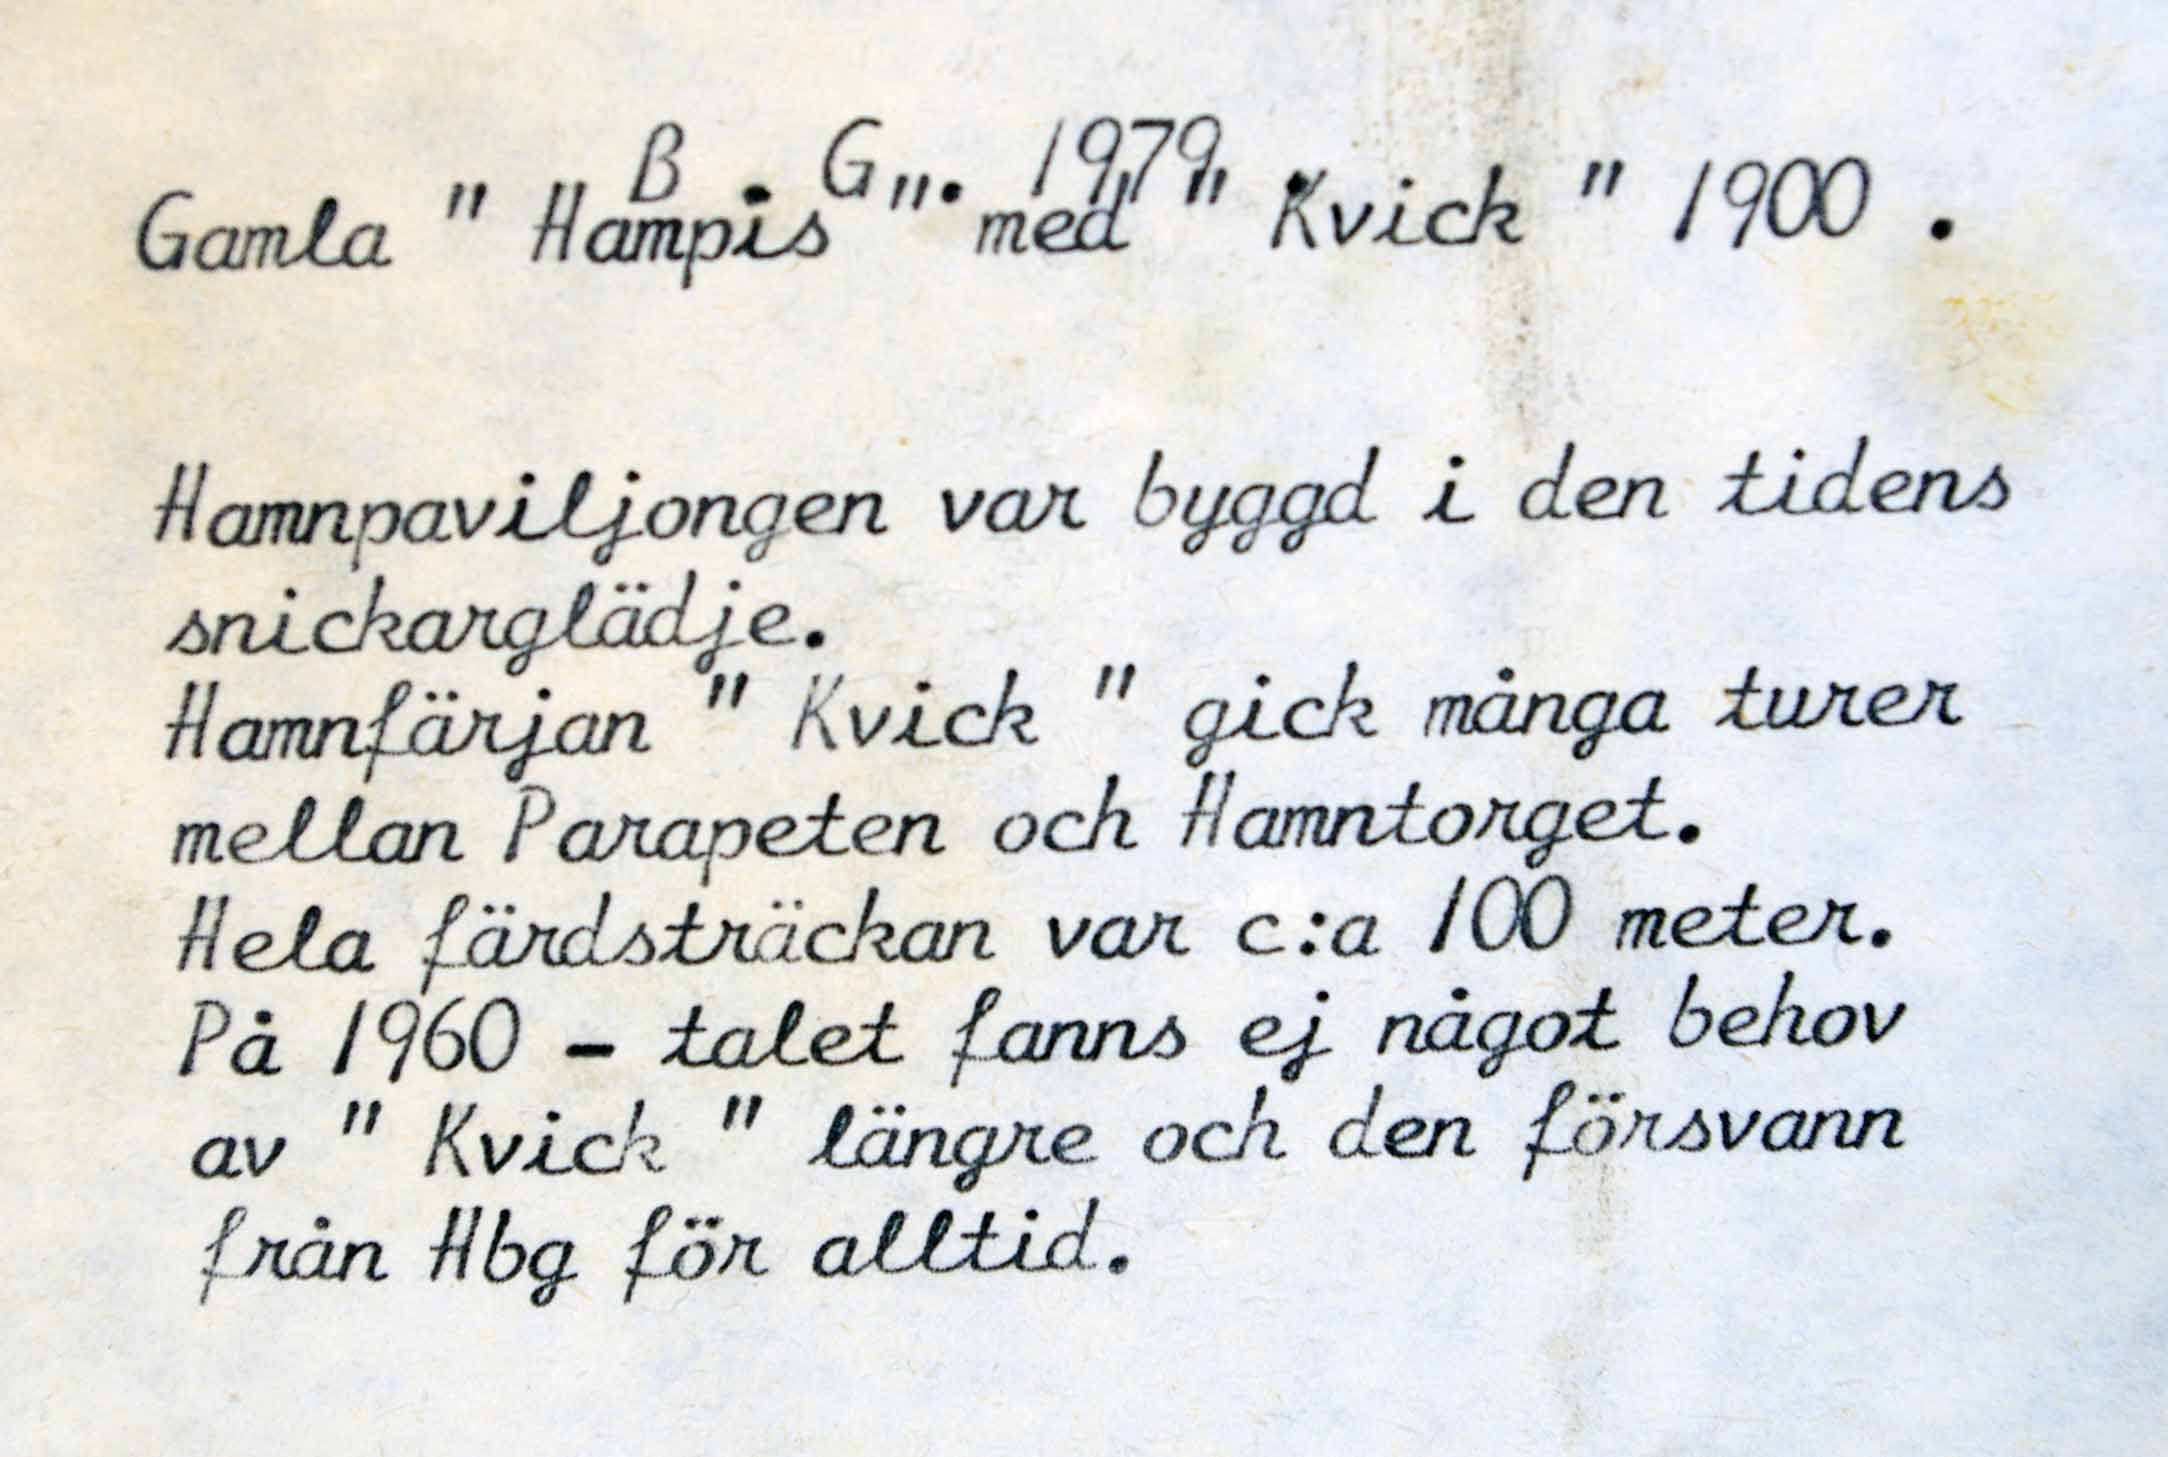 B . G . 1979 .
Gamla " Hampis " med " Kvick " 1900 .
Hamnpaviljongen var byggd i den tidens
snickarglädje.
Hamnfärjan " Kvick " gick många turer
mellan Parapeten och Hamntorget.
Hela färdsträckan var c:a 100 meter.
På 1960 - talet fanns ej något behov
av " Kvick " längre och den försvann
från Hbg för alltid.